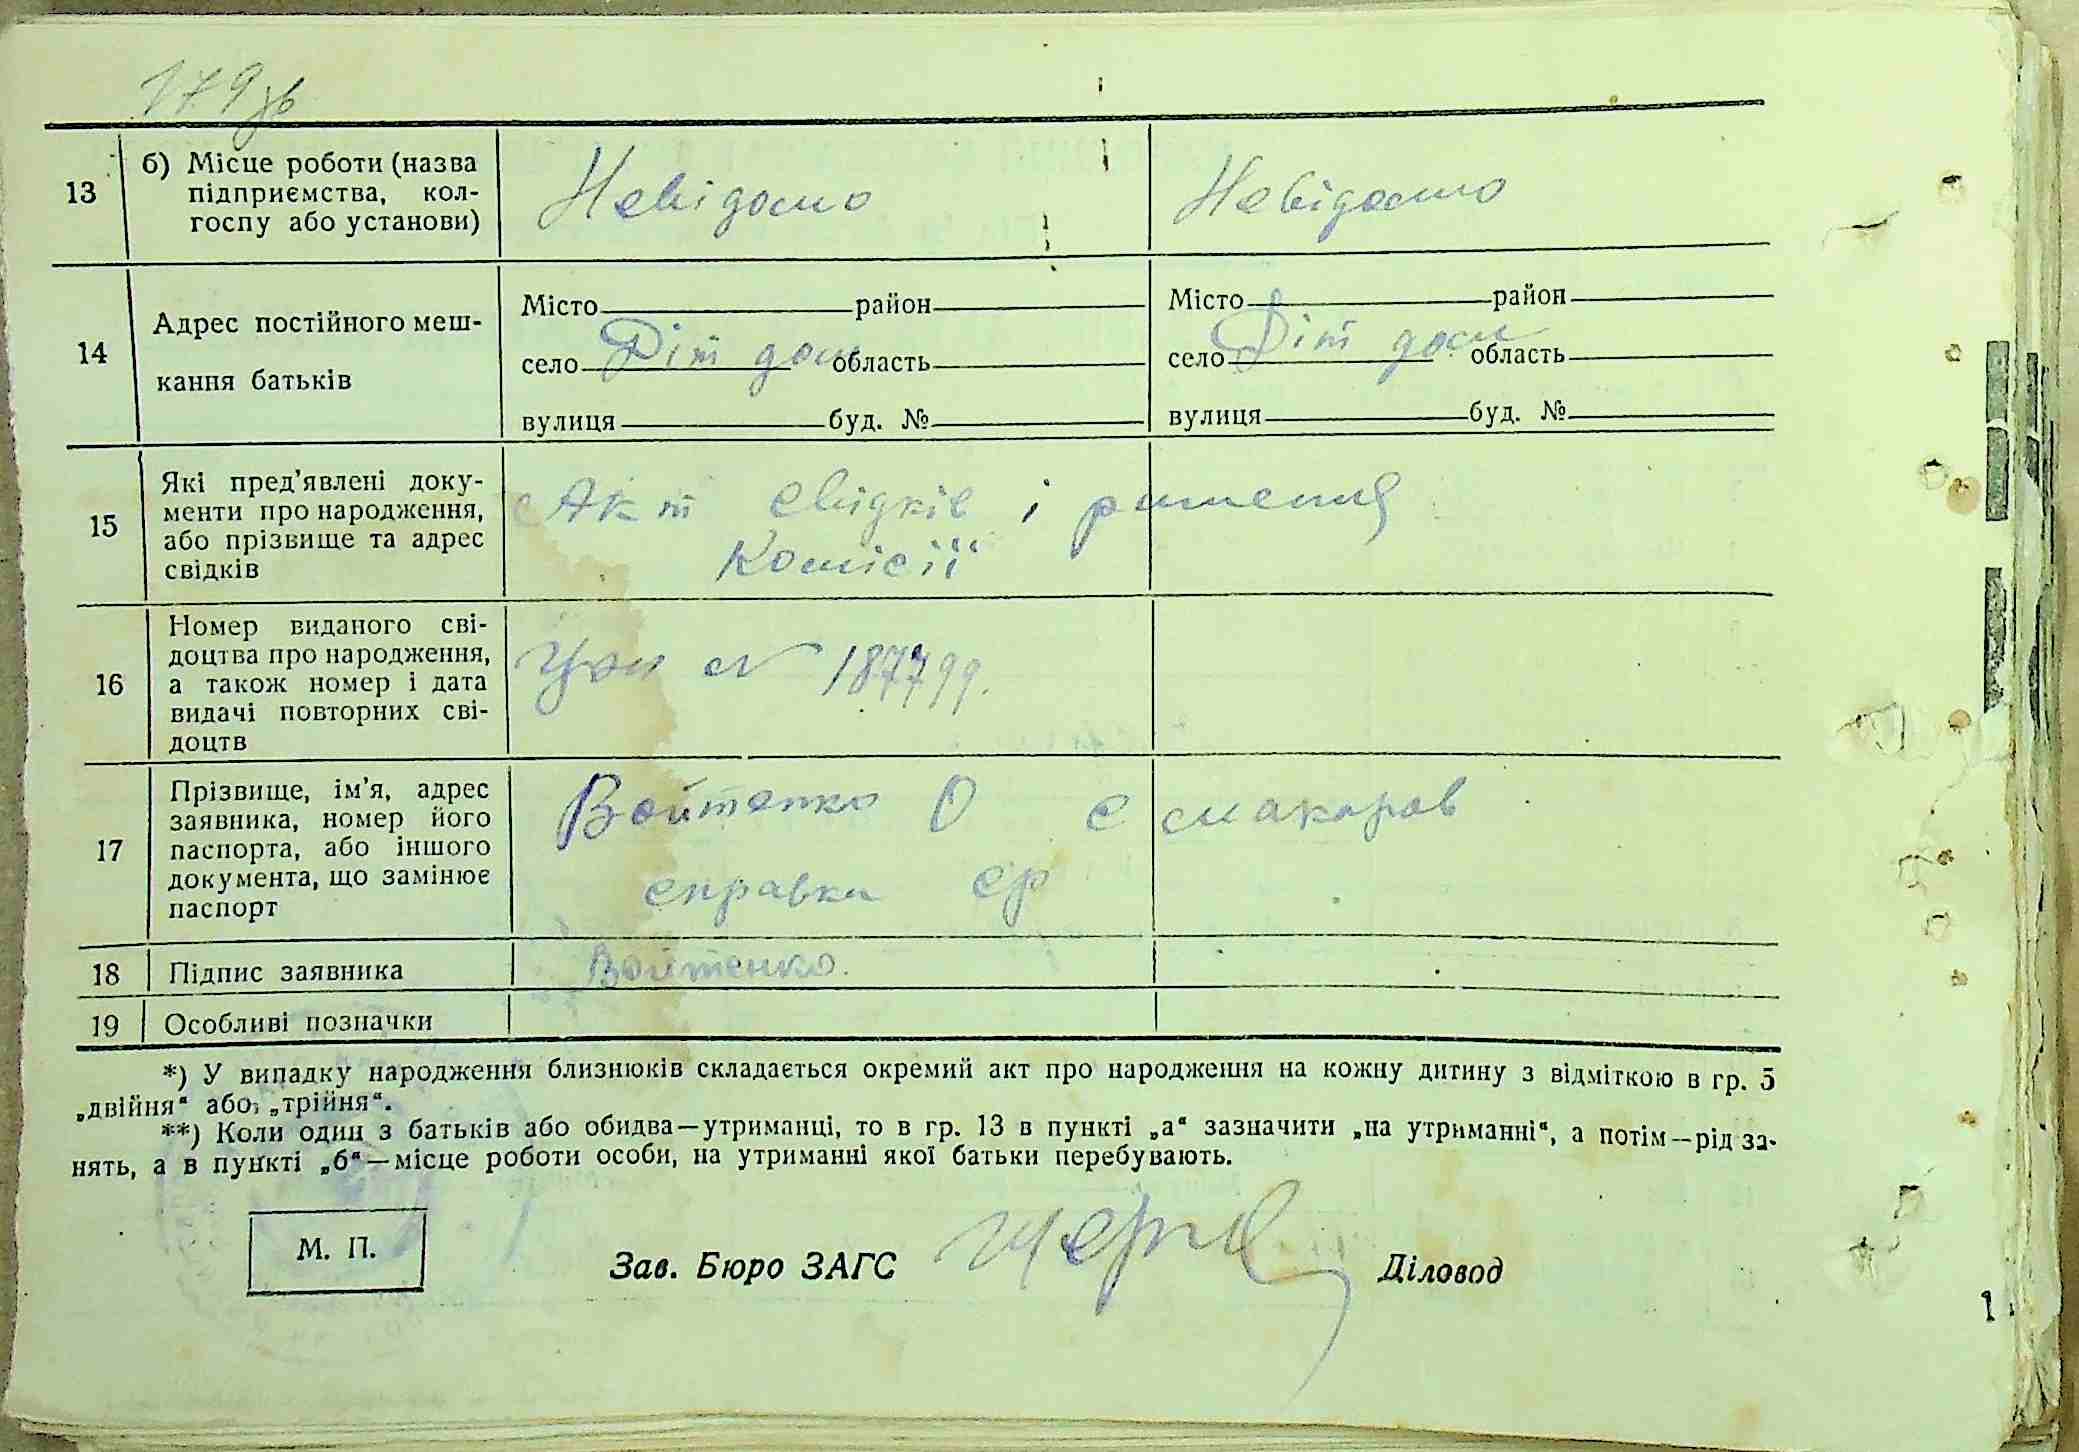 179 зв
13 б) Місце роботи (назва Невідомо Невідомо
підприємства, кол-
госпу або установи)
Місто район Місто район
14 Адрес постійного меш- село Діт дом область село Діт дом область
кання батьків
вулиця буд. № вулиця буд. №
Які пред'явлені доку- Акт свідків і ришення
менти про народження,
15 або прізвище та адрес Комісії
свідків
Номер виданого сві-
доцтва про народження, № 187799.
16 а також номер і дата
видачі повторних сві-
доцтв
Прізвище, ім'я, адрес Войтенко О с макаров
заявника, номер його
17 паспорта, або іншого
документа, що замінює справка ср
паспорт
18 Підпис заявника Войтенко.
19 Особливі позначки
*) У випадку народження близнюків складається окремий акт про народження на кожну дитину з відміткою в гр. 5
„двійня“ або „трійня“.
**) Коли один з батьків або обидва—утриманці, то в гр. 13 в пункті „а“ зазначити „на утриманні“, а потім—рід за-
нять, а в пункті „б“—місце роботи особи, на утриманні якої батьки перебувають.
М. П.
Зав. Бюро ЗАГС Діловод
1